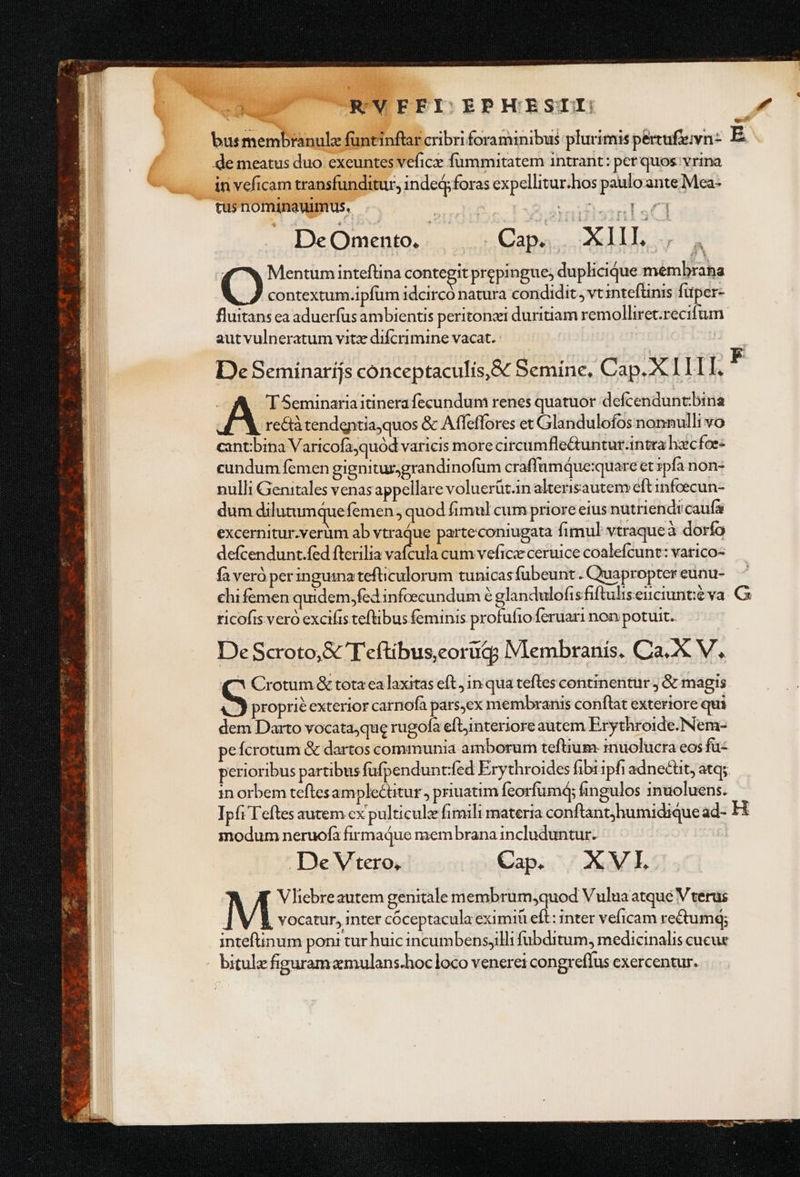 RVFFI EPHESII
bus membranulæ ſunt inſtar cribri foraminibus plurimis pertuſæ:vn- E
de meatus duo exeuntes veſicæ ſummitatem intrant: per quos vrina
in veſicam transfunditur, indeꝗ; foras expellitur.hos paulo ante Mea-
tus nominauimus.
De Omento. Cap. XIII.
OMentum inteſtina contegit prępingue, dupliciq́ue membrana
contextum.ipſum idcircò natura condidit, vt inteſtinis ſuper-
fluitans ea aduerſus ambientis peritonæi duritiam remolliret.reciſum
aut vulneratum vitæ diſcrimine vacat.
De Seminarijs conceptaculis,& Semine. Cap.XIIII. F
AT Seminaria itinera ſecundum renes quatuor deſcendunt:bina
rectà tendentia,quos & Aſſeſſores et Glandulofos nonnulli vo
cant:bina Varicoſa,quòd varicis more circumflectuntur.intra hæc fœ-
cundum ſemen gignitur,grandinoſum craſſumq́ue:quare et ipſa non-
nulli Genitales venas appellare voluerūt.in alteris autem eſt infœcun-
dum dilutumq́ue ſemen, quod ſimul cum priore eius nutriendi cauſa
excernitur.verùm ab vtraque parte coniugata ſimul vtraque à dorſo
deſcendunt.ſed ſterilia vaſcula cum veſicæ ceruice coaleſcunt: varico-
ſa verò per inguina teſticulorum tunicas ſubeunt. Quapropter eunu-
chi ſemen quidem,ſed infœcundum è glanduloſis fiſtulis eiiciunt:è va G
ricoſis verò exciſis teſtibus ſeminis profuſio ſeruari non potuit.
De Scroto,& Teſtibus,eorūꝗ; Membranis. Ca.X V.
SCrotum & tota ea laxitas eſt, in qua teſtes continentur, & magis
propriè exterior carnoſa pars,ex membranis conſtat exteriore qui
dem Darto vocata,quę rugoſa eſt,interiore autem Erythroide.Nem-
pe ſcrotum & dartos communia amborum teſtium inuolucra eos ſu-
perioribus partibus ſuſpendunt:ſed Erythroides ſibi ipſi adnectit, atq;
in orbem teſtes amplectitur, priuatim ſeorſumꝗ; ſingulos inuoluens.
Ipſi Teſtes autem ex pulticulæ ſimili materia conſtant,humidiq́ue ad- H
modum neruoſa firmaq́ue membrana includuntur.
De Vtero. Cap. XVI.
MVliebre autem genitale membrum,quod Vulua atque Vterus
vocatur, inter cōceptacula eximiū eſt: inter veſicam rectumꝗ;
inteſtinum poni tur huic incumbens,illi ſubditum, medicinalis cucur
bitulæ figuram æmulans.hoc loco venerei congreſſus exercentur.